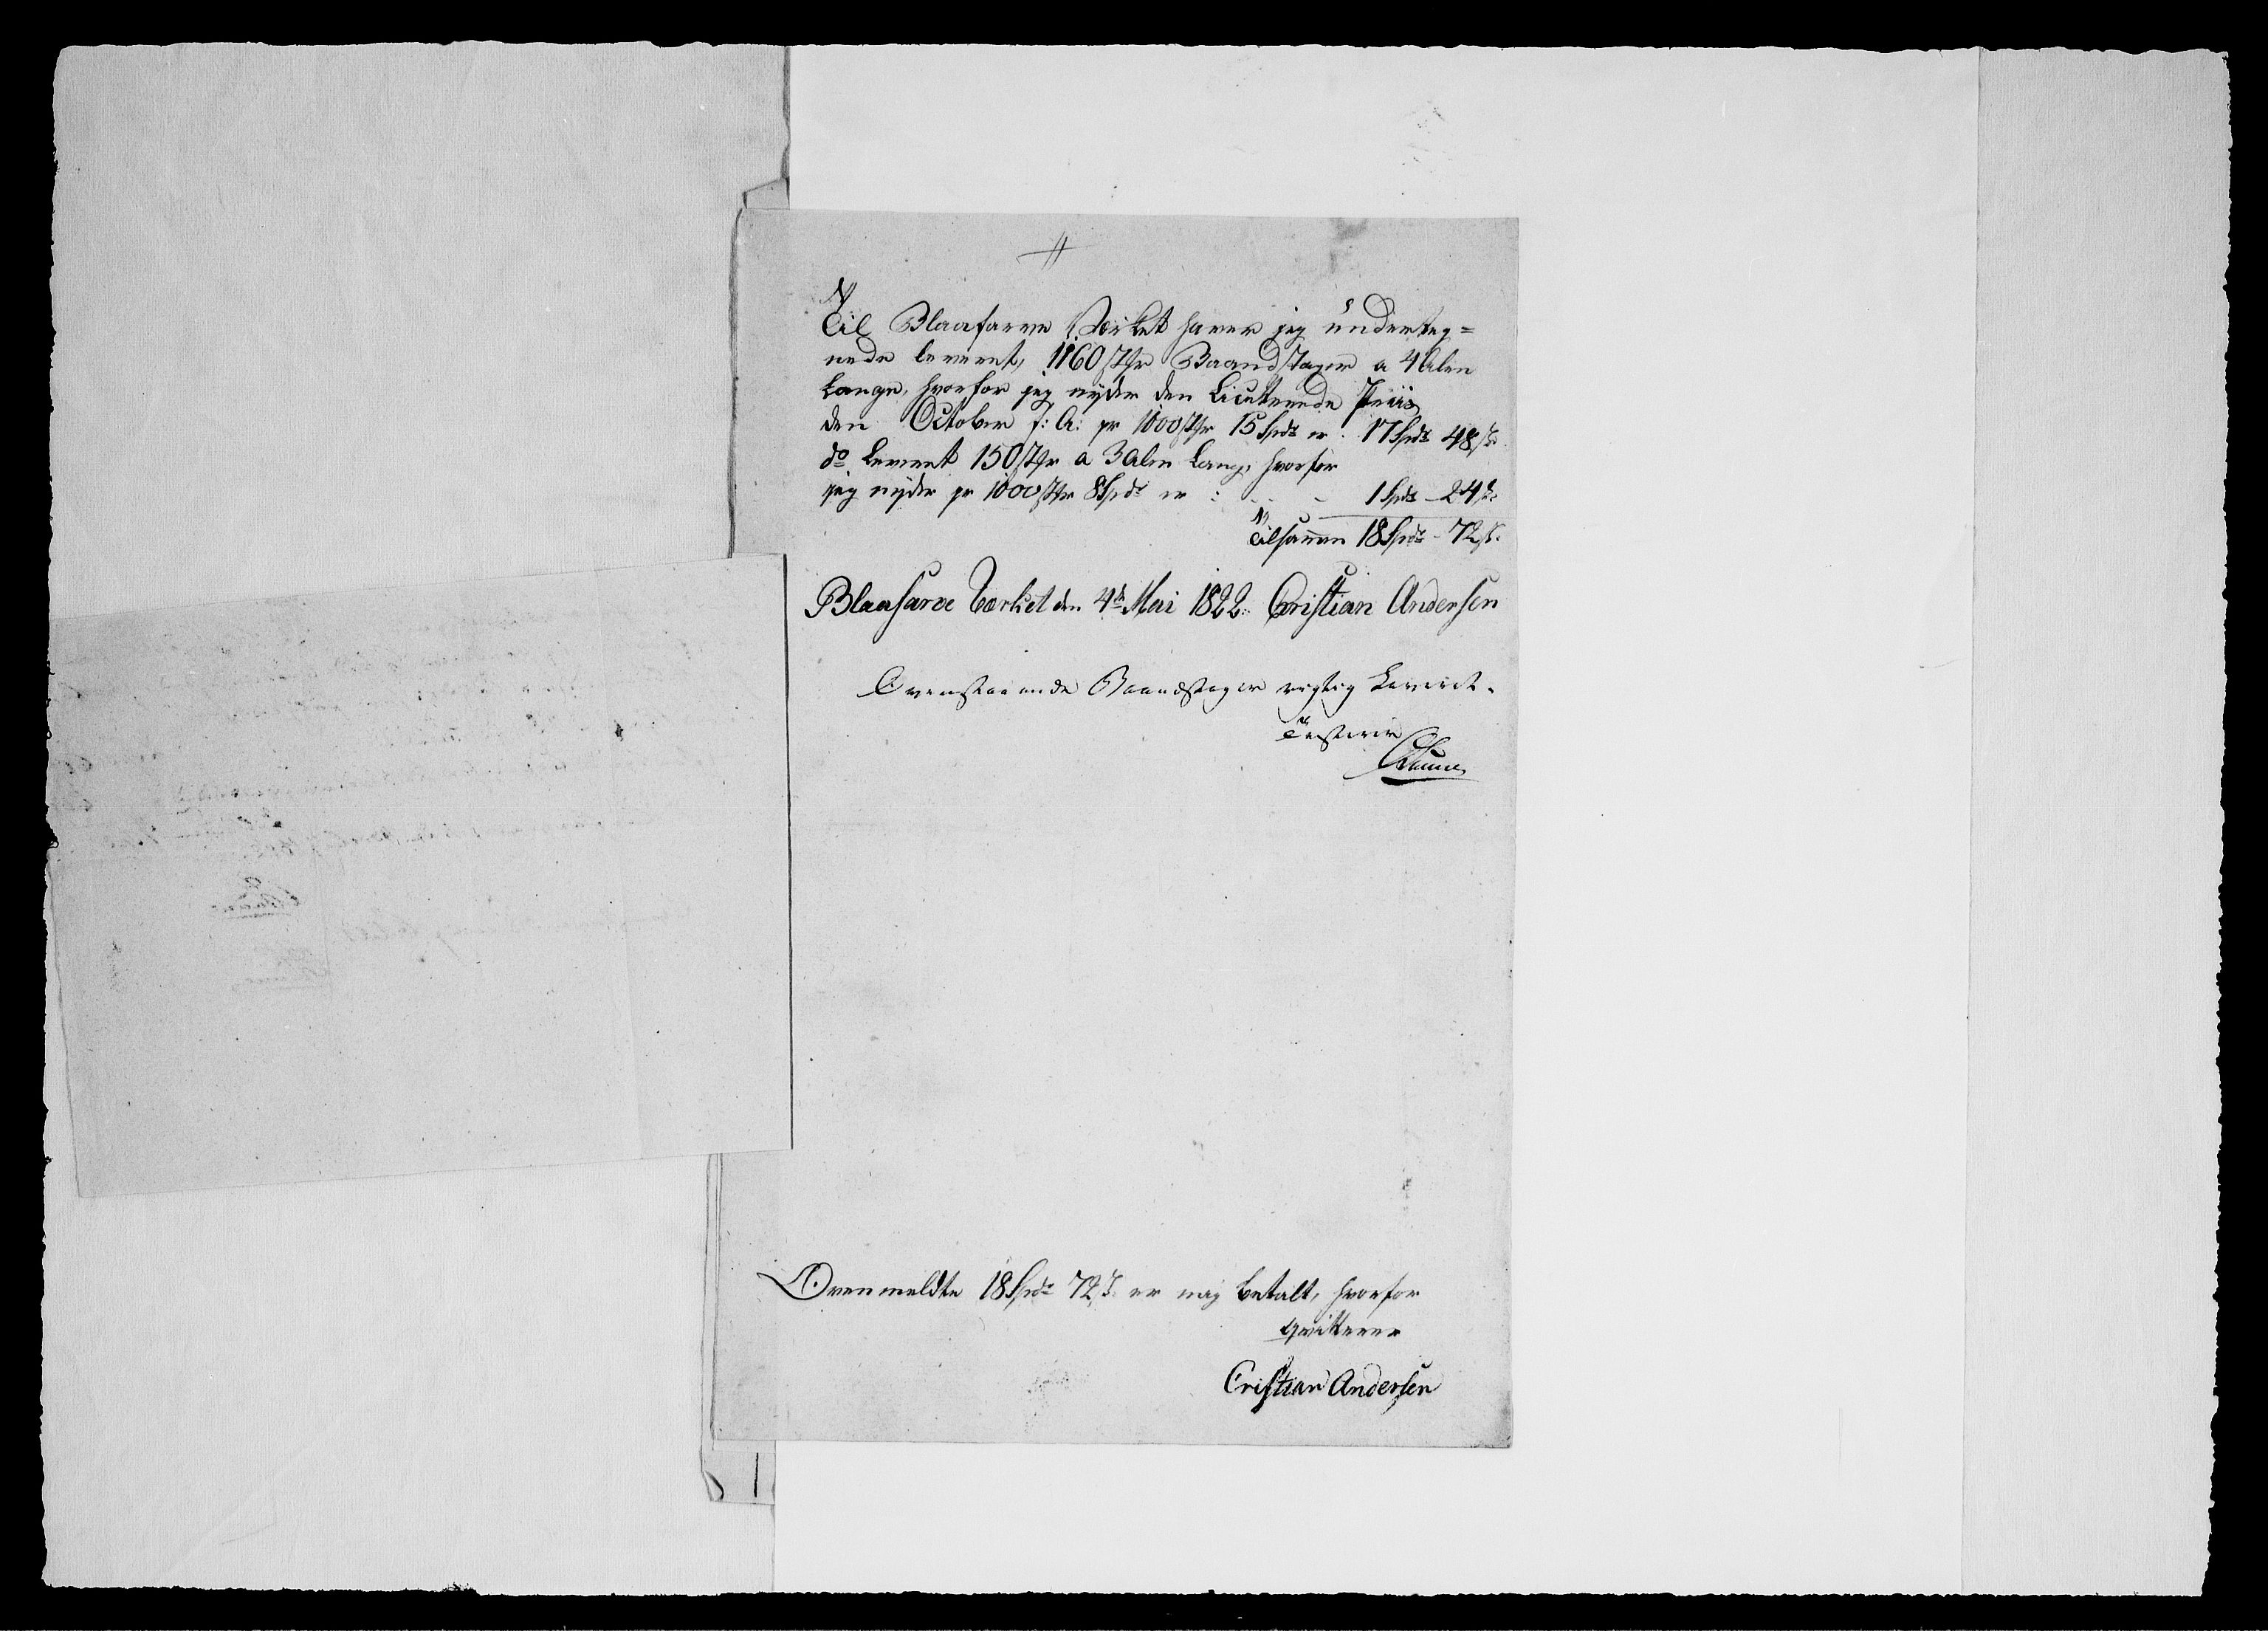 Til Blaafarve Værket haver jeg underteg=
nede leveret, 1160 Stkr Baandstager a 4 Alen
Lange, hvorfor jeg nyder den Liciterede Priis
den October f: A: pr 1000 Stkr 15 Spds er 17 Spds 48 s
do Leveret 150 Stkr a 3 Alen Lang, hvorfor
jeg nyder pr 1000 Stkr 8 Spds er : - - - 1 Spds - 24 s
Tilsamen 18 Spds - 72 s
Blaafarve Værket den 4de Mai 1822. Cristian Andersen
Ovenstaaende Baandstager rigtig Leveret.
Testerer
Ovenmeldte 18 Spds 72 s er mig betalt, hvorfor
qvitterer
Cristian Andersen